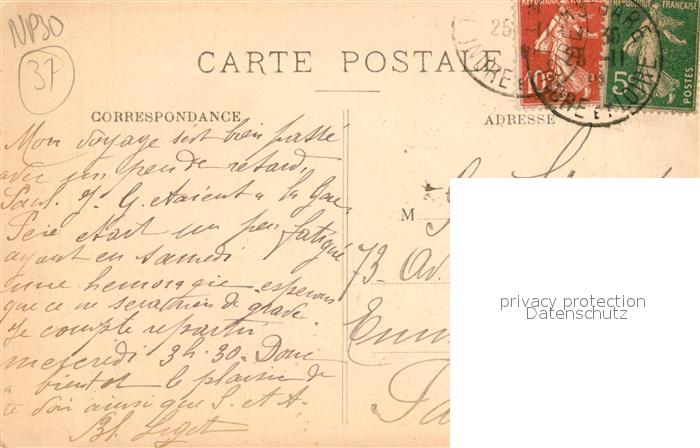 NP30
37
CARTE POSTALE
RÉPUBLIQUE FRANÇAISE
10c
5c
POSTES
INDRE ET LOIRE
CORRESPONDANCE
ADRESSE
Mon voyage s'est bien passé
avec un peu de retard,
Paul. J. G. etaient a la Gare
Père etait un peu fatigué
ayant eu samedi
une hemoragie esperons
que ce ne sera rien de grave
Je compte repartir
mercredi 3h.30. Donc
a bientot le plaisir de
te voir ainsi que S. et A.
M
73 Av.
privacy protection
Datenschutz